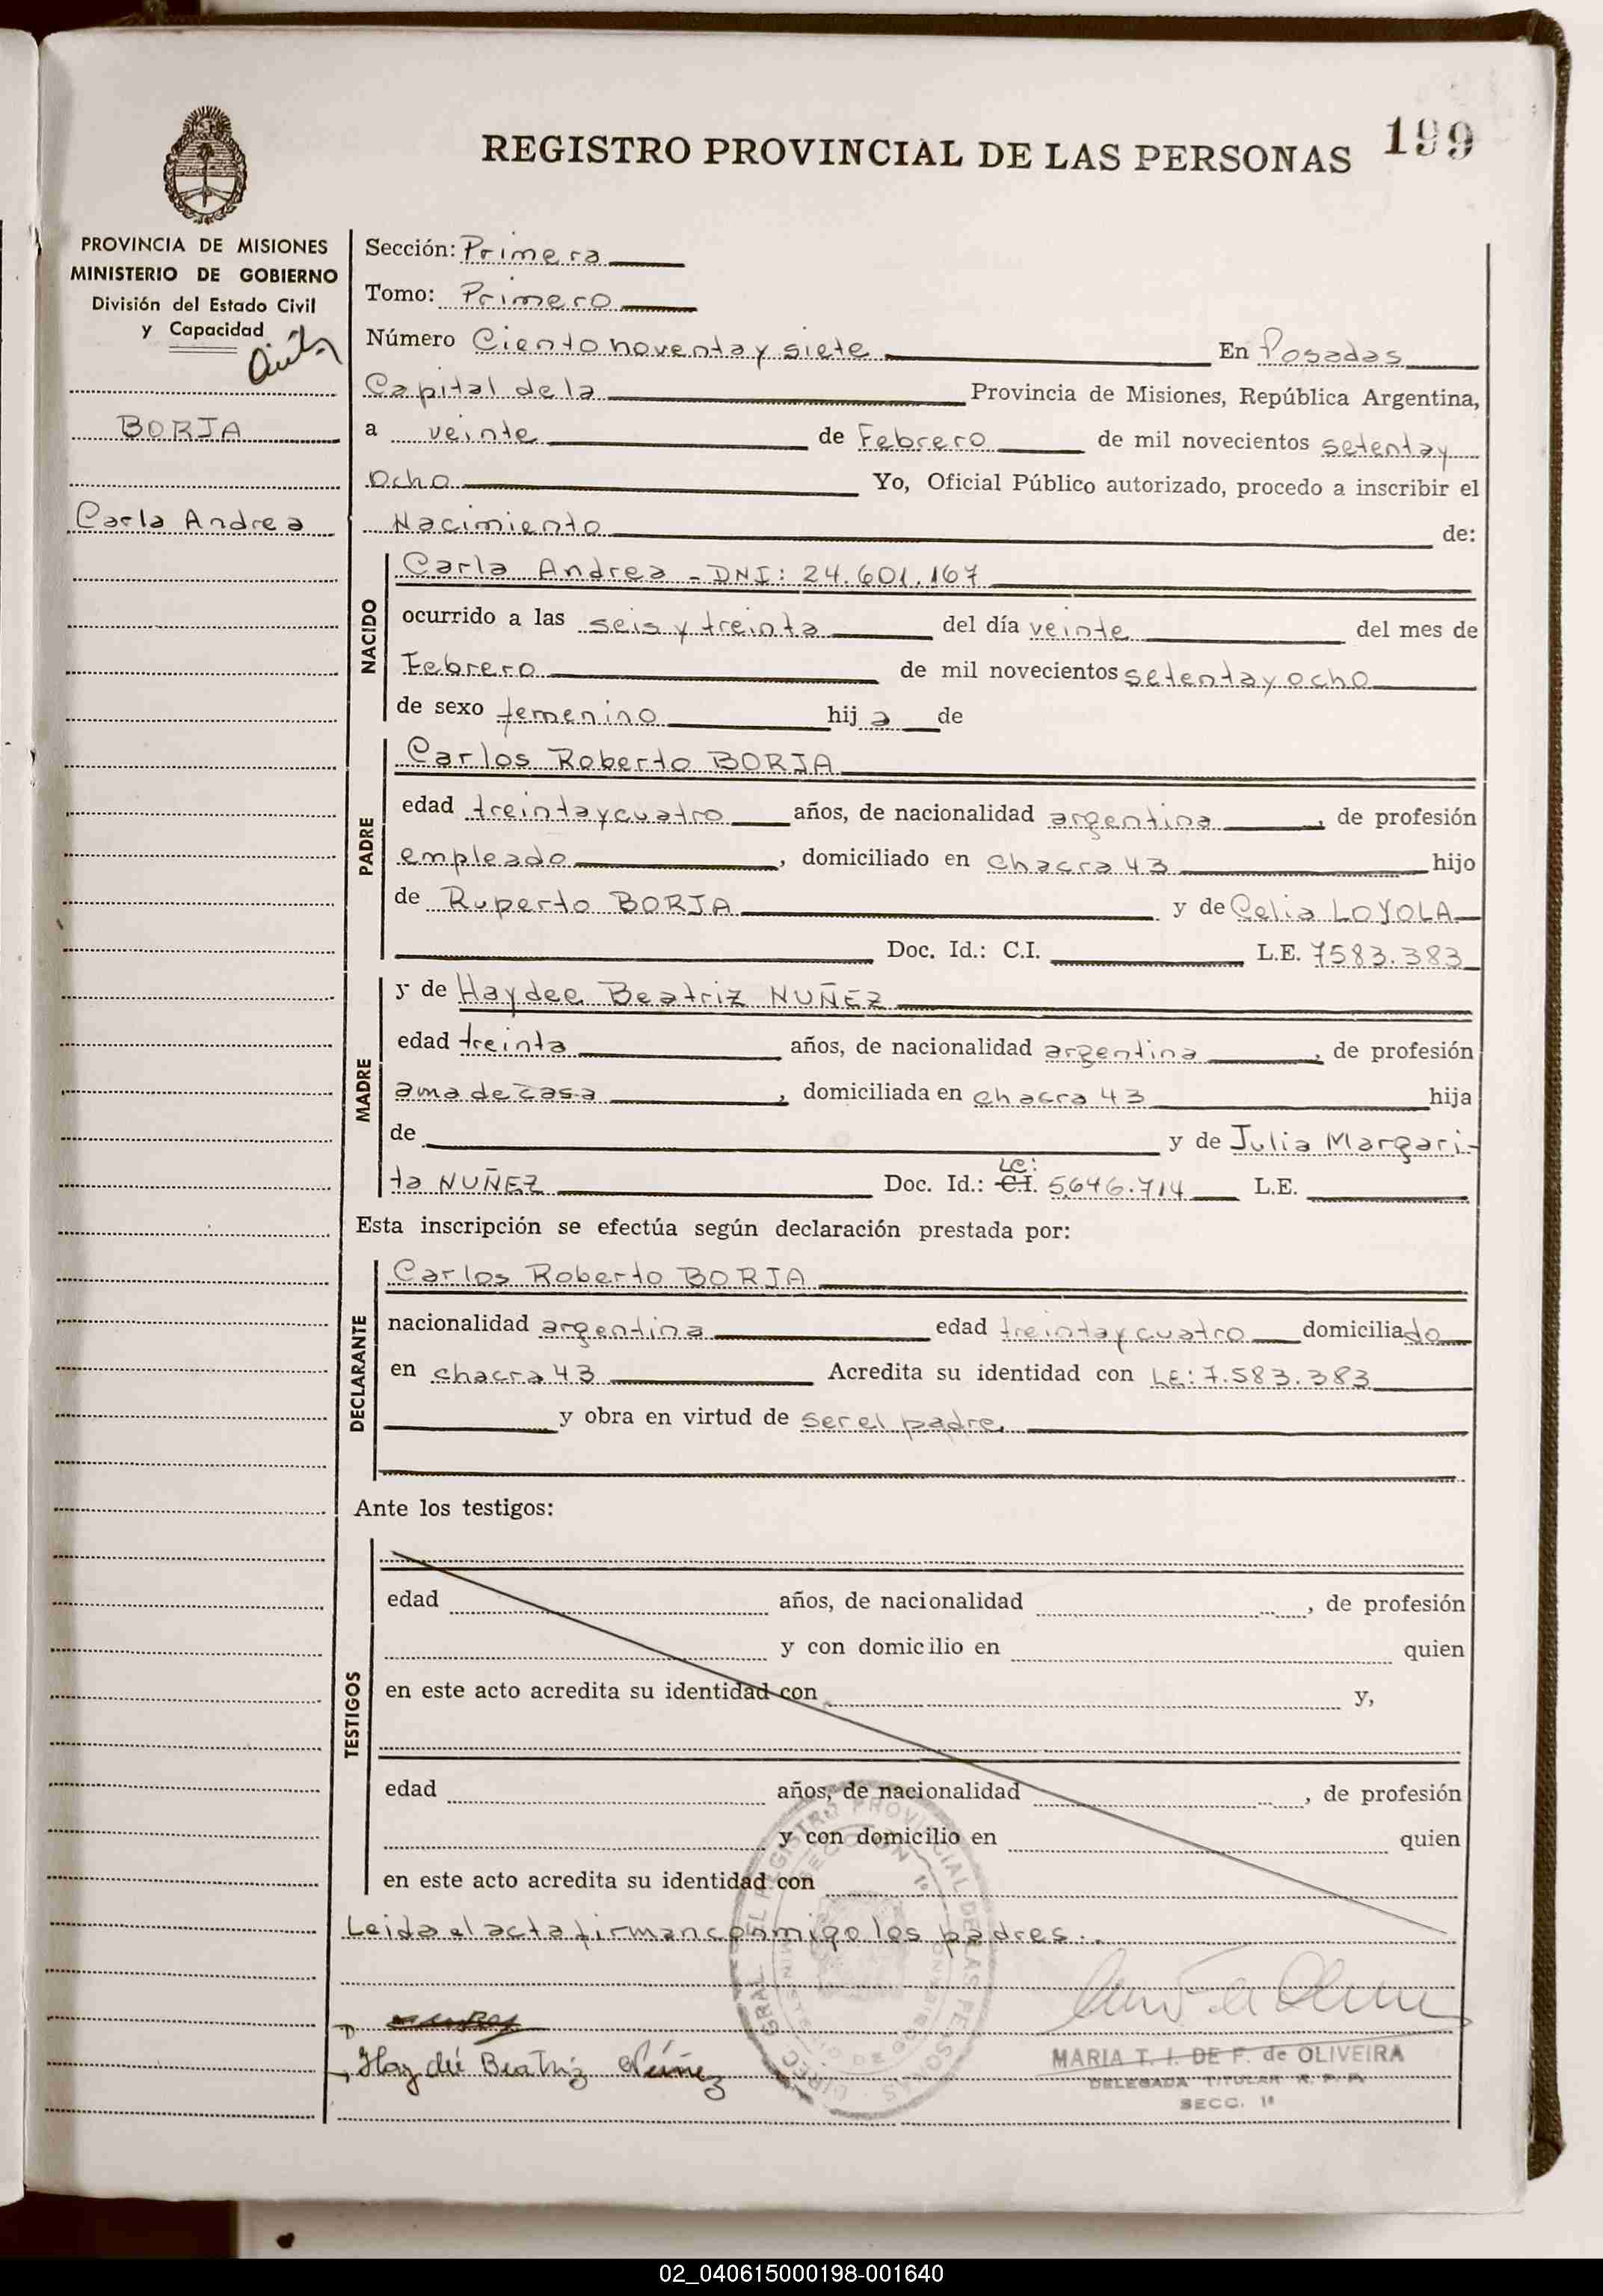 REGISTRO PROVINCIAL DE LAS PERSONAS 199
PROVINCIA DE MISIONES
MINISTERIO DE GOBIERNO
División del Estado Civil
y Capacidad
BORJA
Carla Andrea
Sección: Primera
Tomo: Primero
Número Ciento noventa y siete En Posadas
Capital de la Provincia de Misiones, República Argentina,
a veinte de Febrero de mil novecientos setenta y
Ocho Yo, Oficial Público autorizado, procedo a inscribir el
Nacimiento de:
NACIDO
Carla Andrea - DNI: 24.601.167
ocurrido a las seis y treinta del día veinte del mes de
Febrero de mil novecientos setenta y ocho
de sexo femenino hija de
PADRE
Carlos Roberto BORJA
edad treinta y cuatro años, de nacionalidad argentina, de profesión
empleado, domiciliado en chacra 43 hijo
de Ruperto BORJA y de Celia LOYOLA
Doc. Id.: C.I. L.E. 7583.383
MADRE
y de Haydee Beatriz NUÑEZ
edad treinta años, de nacionalidad argentina, de profesión
ama de casa, domiciliada en chacra 43 hija
de y de Julia Margari-
ta NUÑEZ Doc. Id.: C.I. LC: 5646.714 L.E.
Esta inscripción se efectúa según declaración prestada por:
DECLARANTE
Carlos Roberto BORJA
nacionalidad argentina edad treinta y cuatro domiciliado
en chacra 43 Acredita su identidad con LE: 7.583.383
y obra en virtud de ser el padre.
Ante los testigos:
TESTIGOS
edad años, de nacionalidad , de profesión
y con domicilio en quien
en este acto acredita su identidad con y,
edad años, de nacionalidad , de profesión
y con domicilio en quien
en este acto acredita su identidad con
Leida el acta firman conmigo los padres.
Haydeé Beatriz Núñez
MARIA T. I. DE F. de OLIVEIRA
DELEGADA TITULAR R. P. P.
SECC. 1ª
02_040615000198-001640